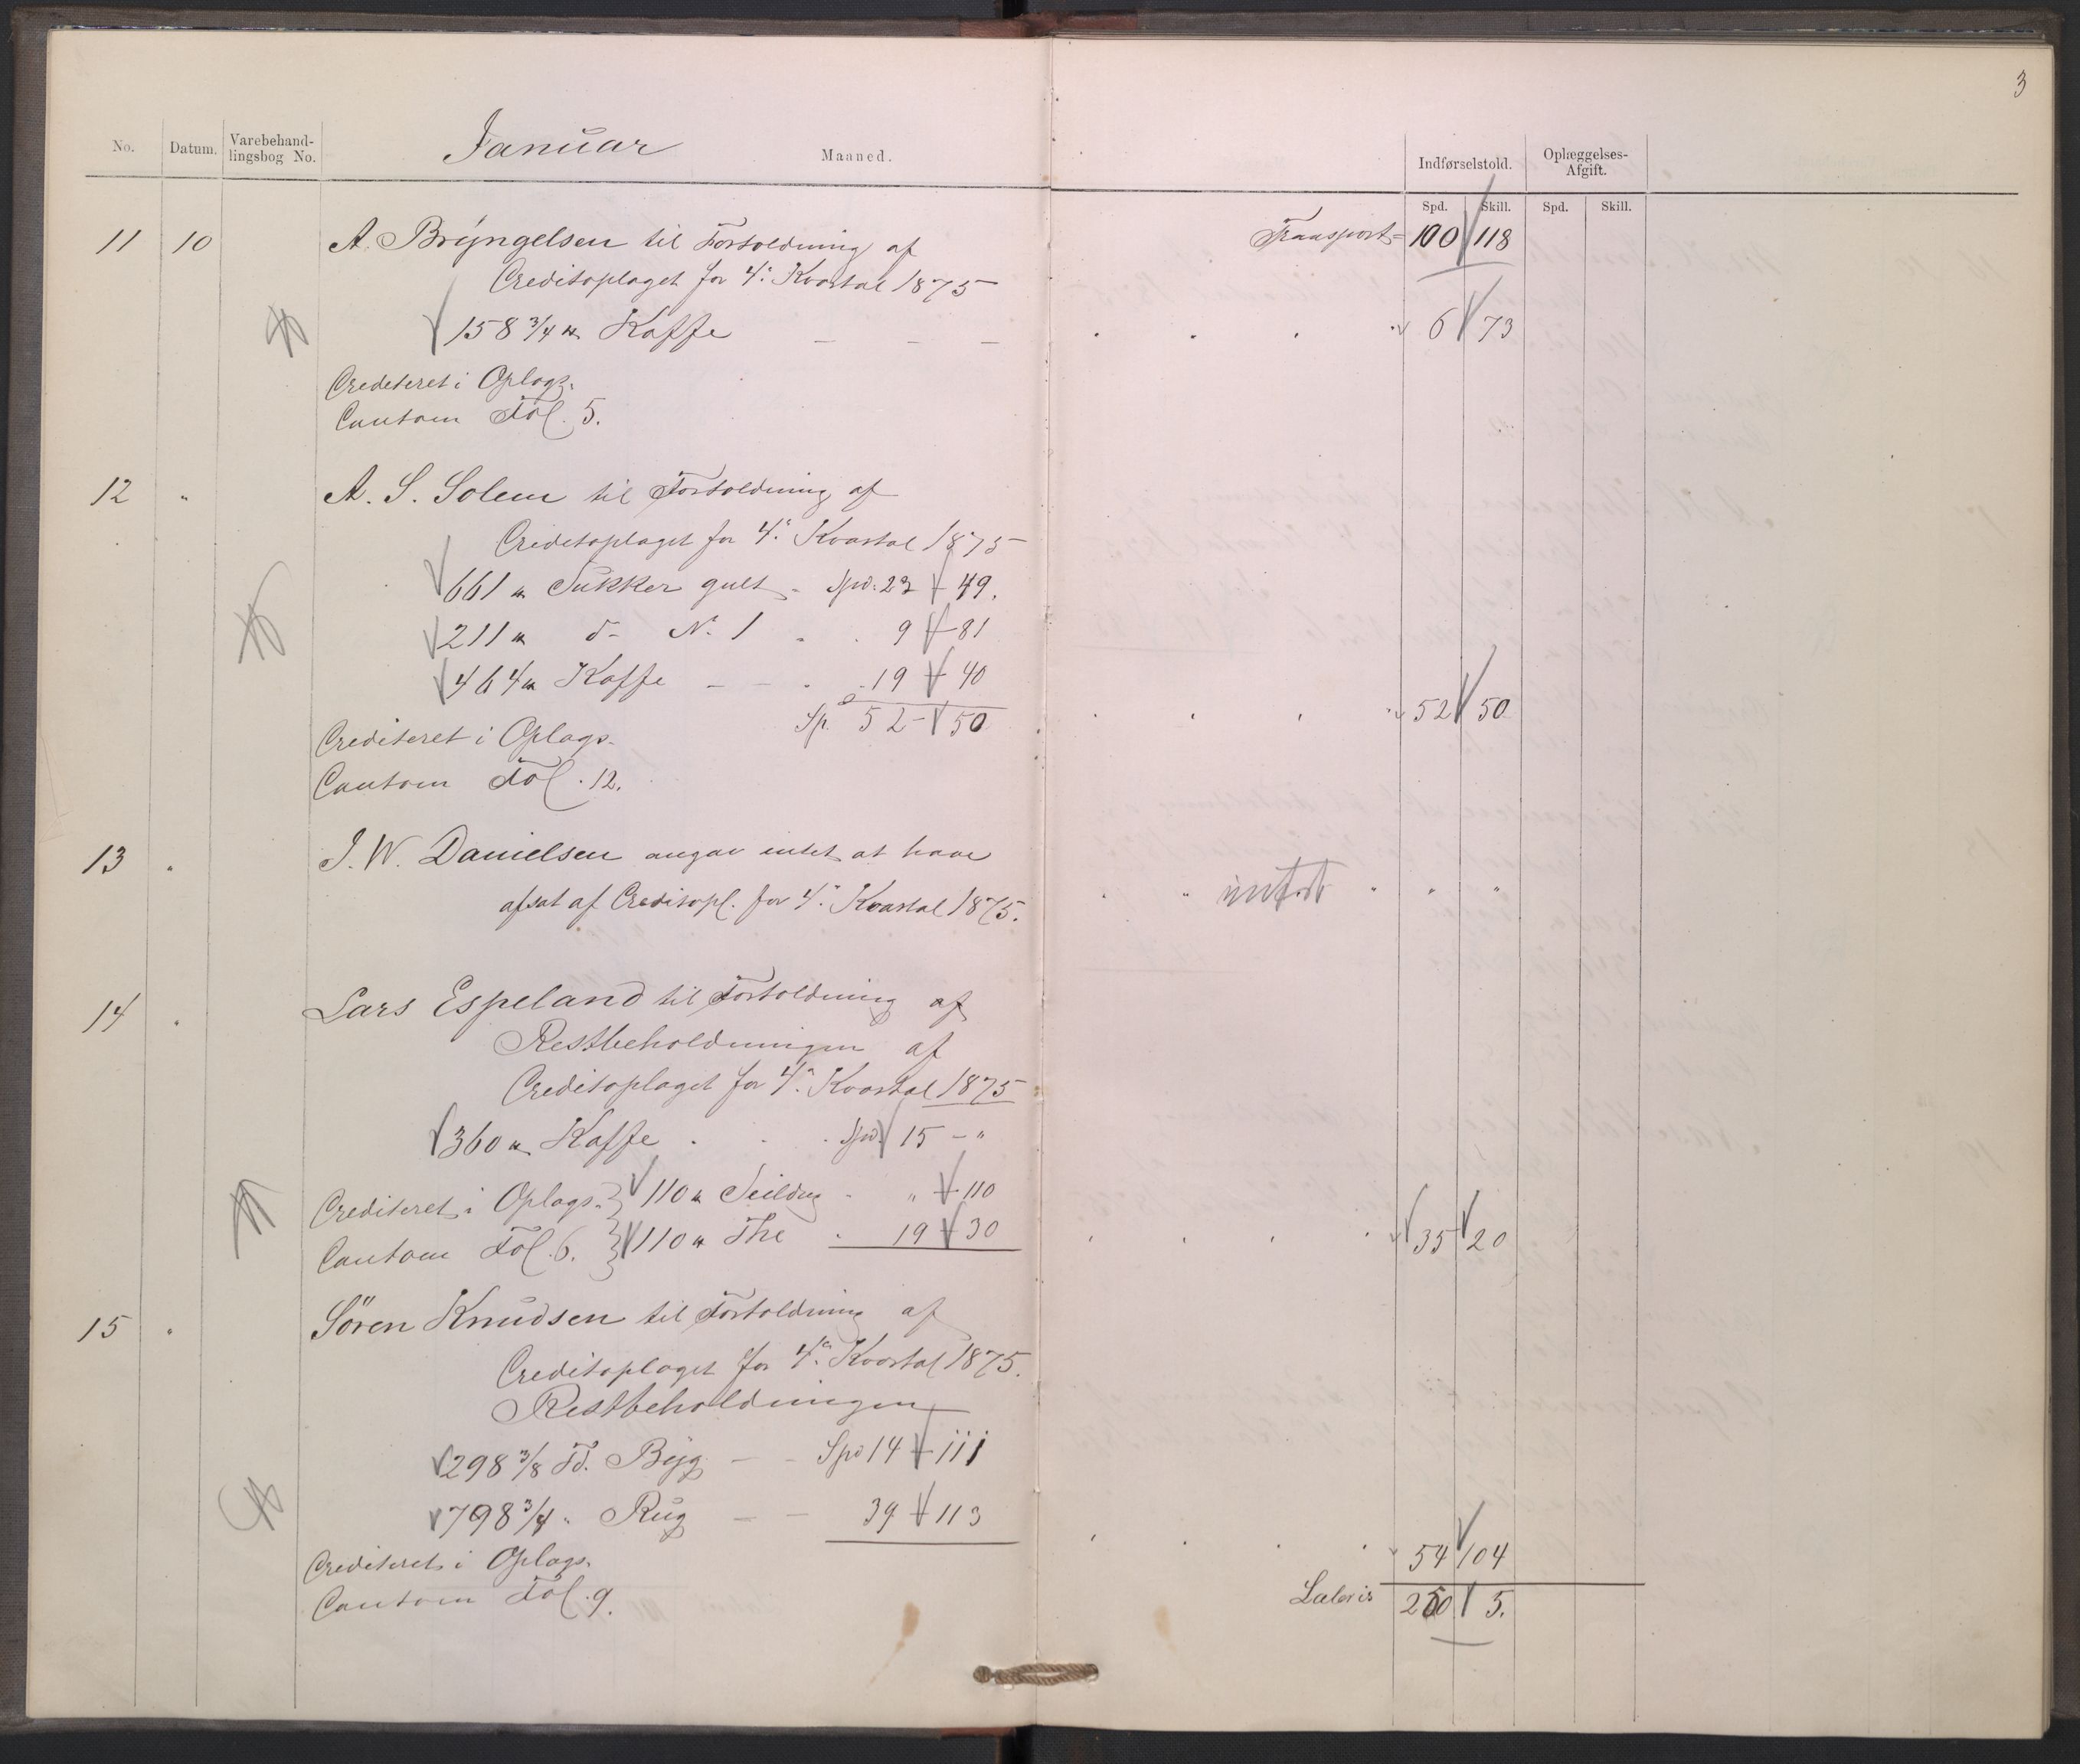 3
No. Datum. Varebehand-lingsbog No. Januar Maaned. Indførselstold. Oplæggelses-Afgift.
Spd. Skill. Spd. Skill.
11 10 A. Bryngelsen til Fortoldning af Transport 100 118
Creditoplaget for 4. Kvartal 1875
158 3/4 ℔ Kaffe 6 73
Crediteret i Oplags-
Contoen Fol. 5.
12 " A. S. Solem til Fortoldning af
Creditoplaget for 4. Kvartal 1875
661 ℔ Sukker gult - Spd. 23 - 49.
211 ℔ do No. 1 9 - 81
464 ℔ Kaffe - - 19 - 40
Sp. 52 - 50 52 50
Crediteret i Oplags-
Contoen Fol. 12.
13 " J. W. Danielsen angav intet at have
afsat af Creditopl. for 4. Kvartal 1875. " intet " " "
14 " Lars Espeland til Fortoldning af
Restbeholdningen af
Creditoplaget for 4. Kvartal 1875
360 ℔ Kaffe Spd. 15 - "
Crediteret i Oplags- } 110 ℔ Seildug " - 110
Contoen Fol. 6. } 110 ℔ The 19 - 30 35 20
15 " Sören Knudsen til Fortoldning af
Creditoplaget for 4. Kvartal 1875.
Restbeholdningen
298 3/8 Td. Byg - - Spd 14 - 111
798 3/4 " Rug - - 39 - 113
Crediteret i Oplags- 54 104
Contoen Fol. 9. Lateris 250 5.